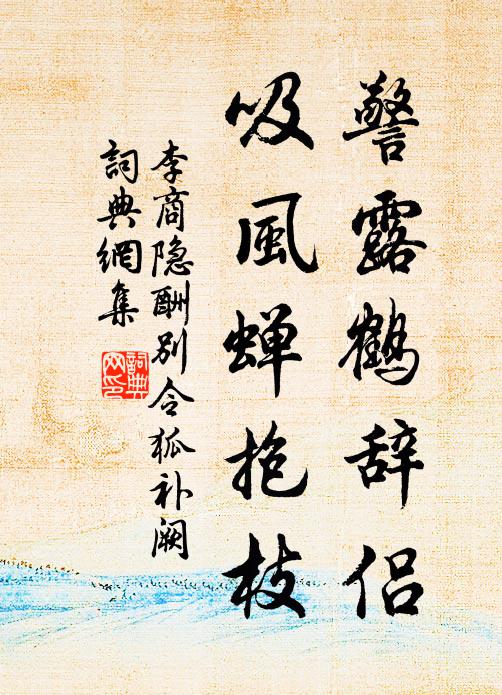 警露鹤辞侣
吸風蝉抱枝
李商隐酬别令狐补阙
詞典網集
詞典網印